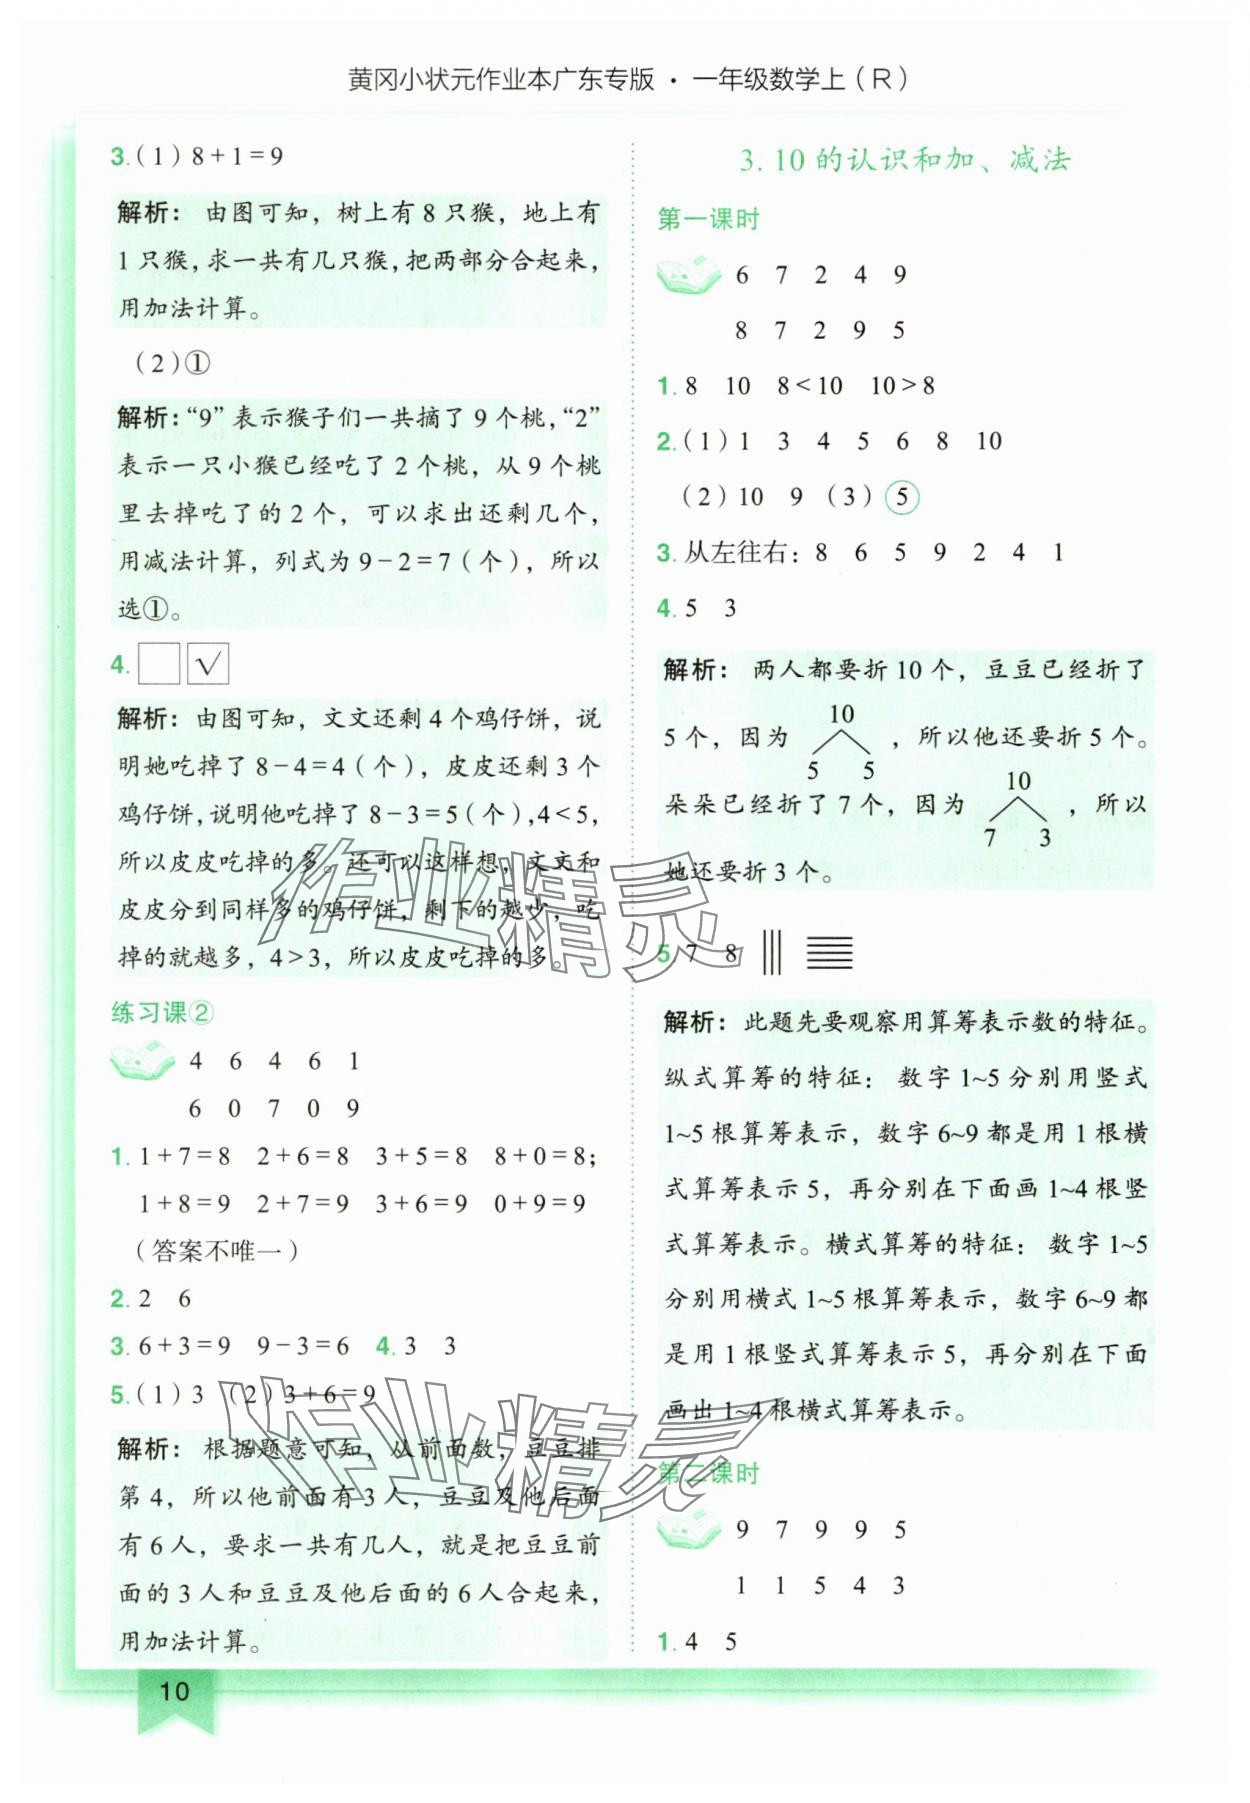 黄冈小状元作业本广东专版·一年级数学上（R）
3.（1）8+1=9
解析：由图可知，树上有8只猴，地上有
1只猴，求一共有几只猴，把两部分合起来，
用加法计算。
（2）①
解析：“9”表示猴子们一共摘了9个桃，“2”
表示一只小猴已经吃了2个桃，从9个桃
里去掉吃了的2个，可以求出还剩几个，
用减法计算，列式为9-2=7（个），所以
选①。
4. □ ☑
解析：由图可知，文文还剩4个鸡仔饼，说
明她吃掉了8-4=4（个），皮皮还剩3个
鸡仔饼，说明他吃掉了8-3=5（个），4<5，
所以皮皮吃掉的多。还可以这样想，文文和
皮皮分到同样多的鸡仔饼，剩下的越少，吃
掉的就越多，4>3，所以皮皮吃掉的多。
练习课②
4 6 4 6 1
6 0 7 0 9
1. 1+7=8 2+6=8 3+5=8 8+0=8；
1+8=9 2+7=9 3+6=9 0+9=9
（答案不唯一）
2. 2 6
3. 6+3=9 9-3=6 4. 3 3
5.（1）3 （2）3+6=9
解析：根据题意可知，从前面数，豆豆排
第4，所以他前面有3人，豆豆及他后面
有6人，要求一共有几人，就是把豆豆前
面的3人和豆豆及他后面的6人合起来，
用加法计算。
10
3. 10的认识和加、减法
第一课时
6 7 2 4 9
8 7 2 9 5
1. 8 10 8<10 10>8
2.（1）1 3 4 5 6 8 10
（2）10 9 （3）⑤
3. 从左往右：8 6 5 9 2 4 1
4. 5 3
解析：两人都要折10个，豆豆已经折了
10
5个，因为 ，所以他还要折5个。
5 5
10
朵朵已经折了7个，因为 ，所以
7 3
她还要折3个。
5. 7 8
解析：此题先要观察用算筹表示数的特征。
纵式算筹的特征：数字1~5分别用竖式
1~5根算筹表示，数字6~9都是用1根横
式算筹表示5，再分别在下面画1~4根竖
式算筹表示。横式算筹的特征：数字1~5
分别用横式1~5根算筹表示，数字6~9都
是用1根竖式算筹表示5，再分别在下面
画出1~4根横式算筹表示。
第二课时
9 7 9 9 5
1 1 5 4 3
1. 4 5
作业精灵
作业精灵